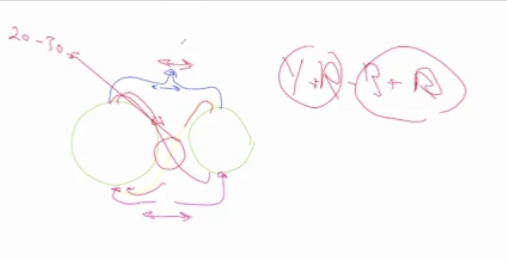 20-30
Y+R - B + R